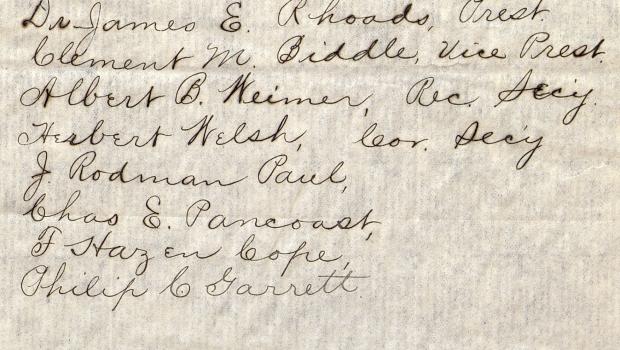 Dr James E. Rhoads, Prest.
Clement M. Biddle, Vice Prest.
Albert B. Weimer, Rec. Sec'y.
Herbert Welsh, Cor. Sec'y
J. Rodman Paul,
Chas E. Pancoast,
F Hazen Cope,
Philip C Garrett